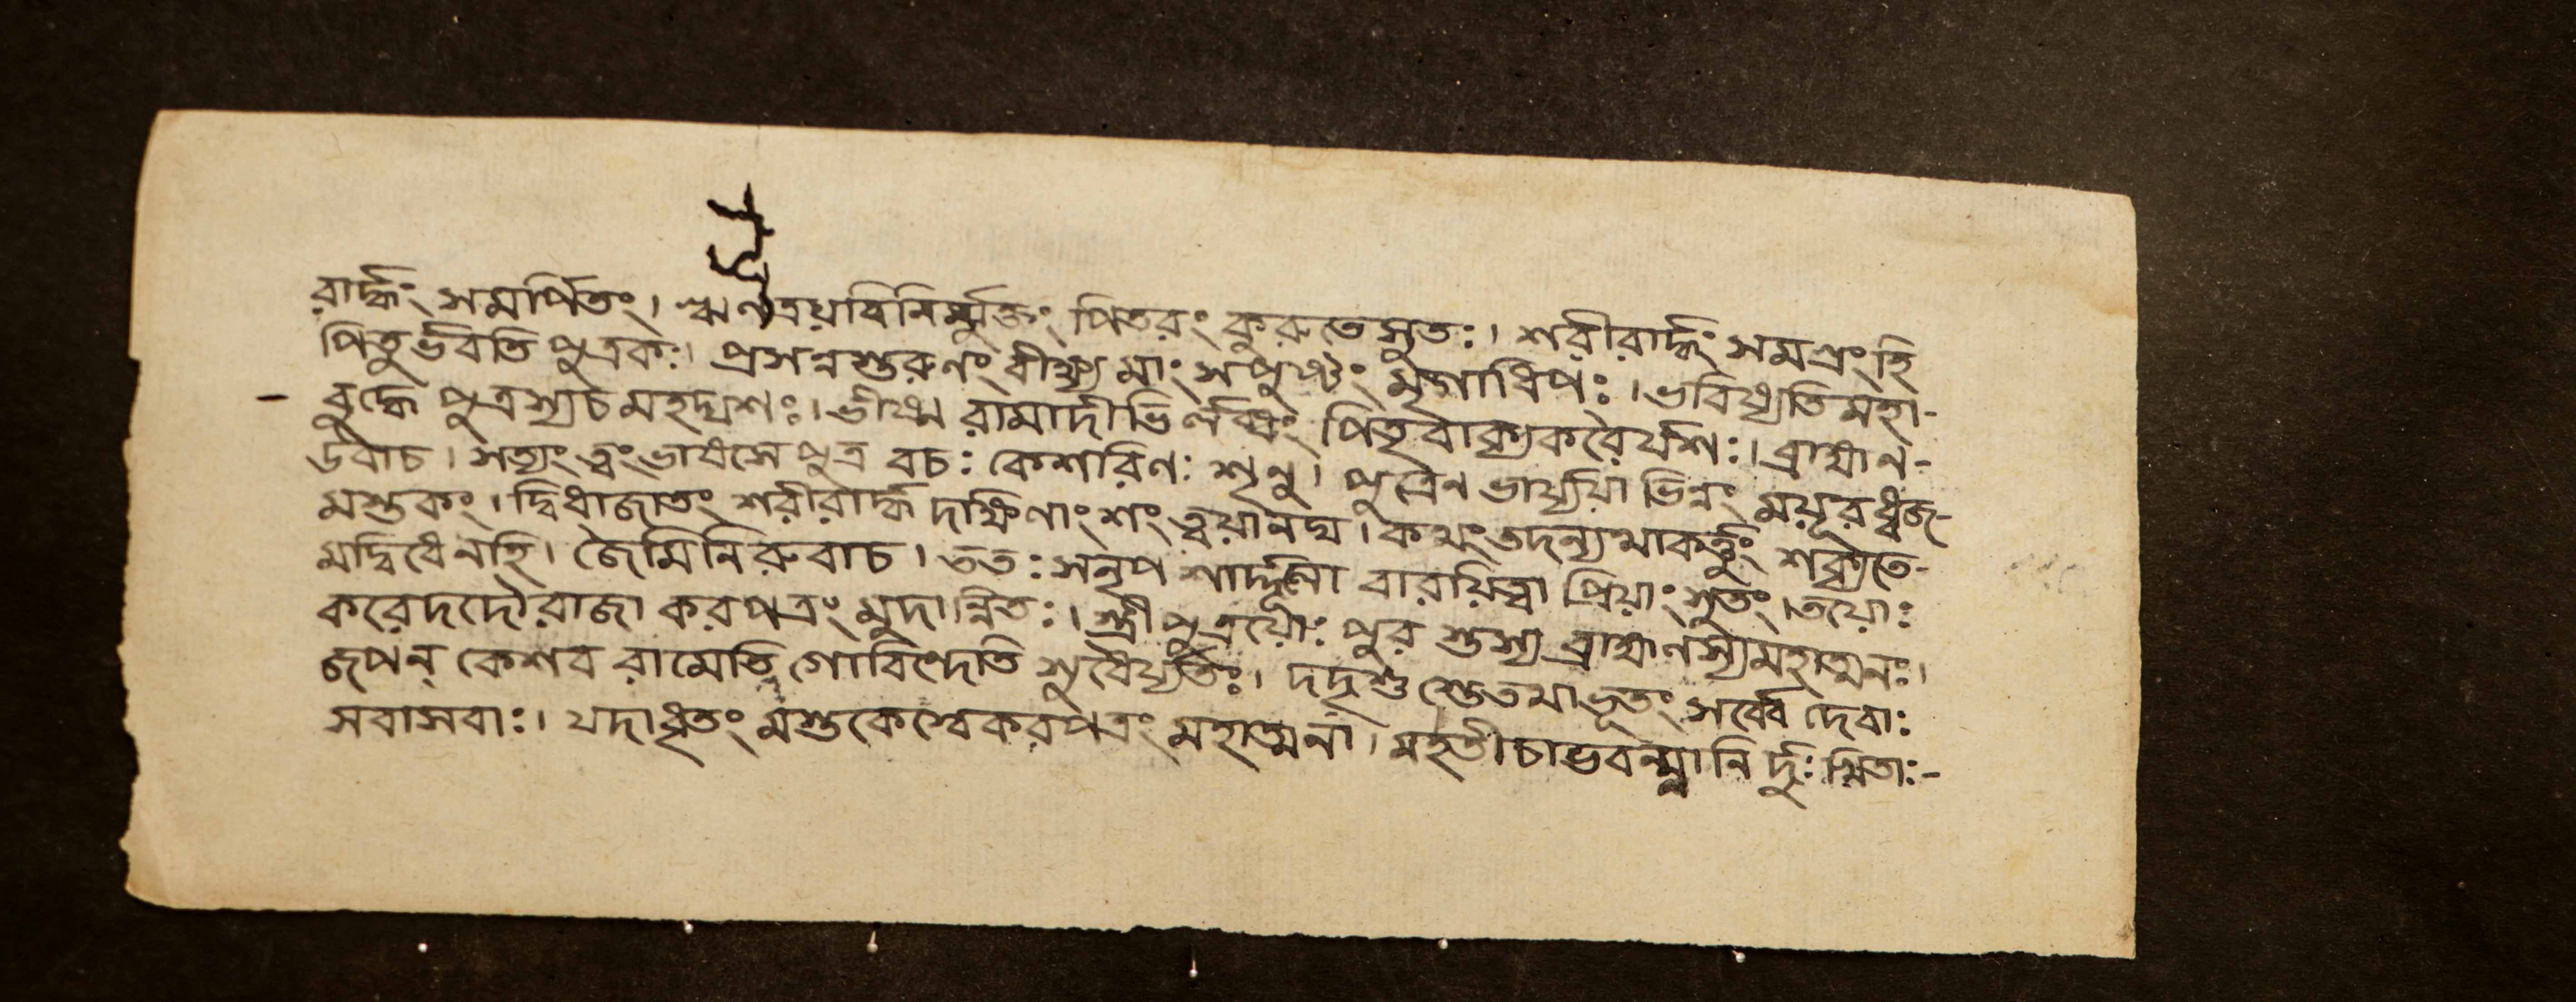 রার্দ্ধং সমর্পিতং। ঋণত্রয়বিনির্ম্মুক্তং পিতরং কুরুতে সুতঃ। শরীরার্দ্ধং সমগ্রং হি
পিতুর্ভবতি পুত্রকঃ। প্রসন্নস্তরুণং বীক্ষ্য মাং সপুষ্টং মৃগাধিপঃ। ভবিষ্যতি মহা-
বুদ্ধে পুত্রস্যচ মহদ্যশঃ। ভীষ্ম রামাদীভির্লব্ধং পিতৃবাক্যকরৈর্যশঃ। ব্রাহ্মণ-
উবাচ। সত্যং ত্বং ভাষসে পুত্র বচঃ কেশরিণঃ শৃনু। পুত্রেন ভার্য্যয়া ভিন্নং ময়ূরধ্বজ-
মস্তকং। দ্বিধাজাতং শরীরার্দ্ধ দক্ষিণাং শং ত্বয়ানদ্য। কথং তদন্যথাকর্ত্তুং শক্যতে-
মদ্বিধেনহি। জৈমিনিরুবাচ। ততঃ সনৃপ শার্দ্দূলো বারয়িত্বা প্রিয়াং সুতং। তয়োঃ
করেদদৌরাজা করপত্রং মুদান্বিতঃ। স্ত্রীপুত্রয়োঃ পুর স্তস্য ব্রাহ্মণস্যমহাত্মনঃ।
জপন্ কেশব রামেতি গোবিন্দেতি সুধৈর্য্যতঃ। দদৃশু স্তেতমাদ্ভূতং সর্ব্বে দেবাঃ
সবাসবাঃ। যদাধৃতং মস্তকেস্বেকরপত্রং মহাত্মনা। মহতীচাভবন্ম্লানি র্দুঃখিতাঃ-